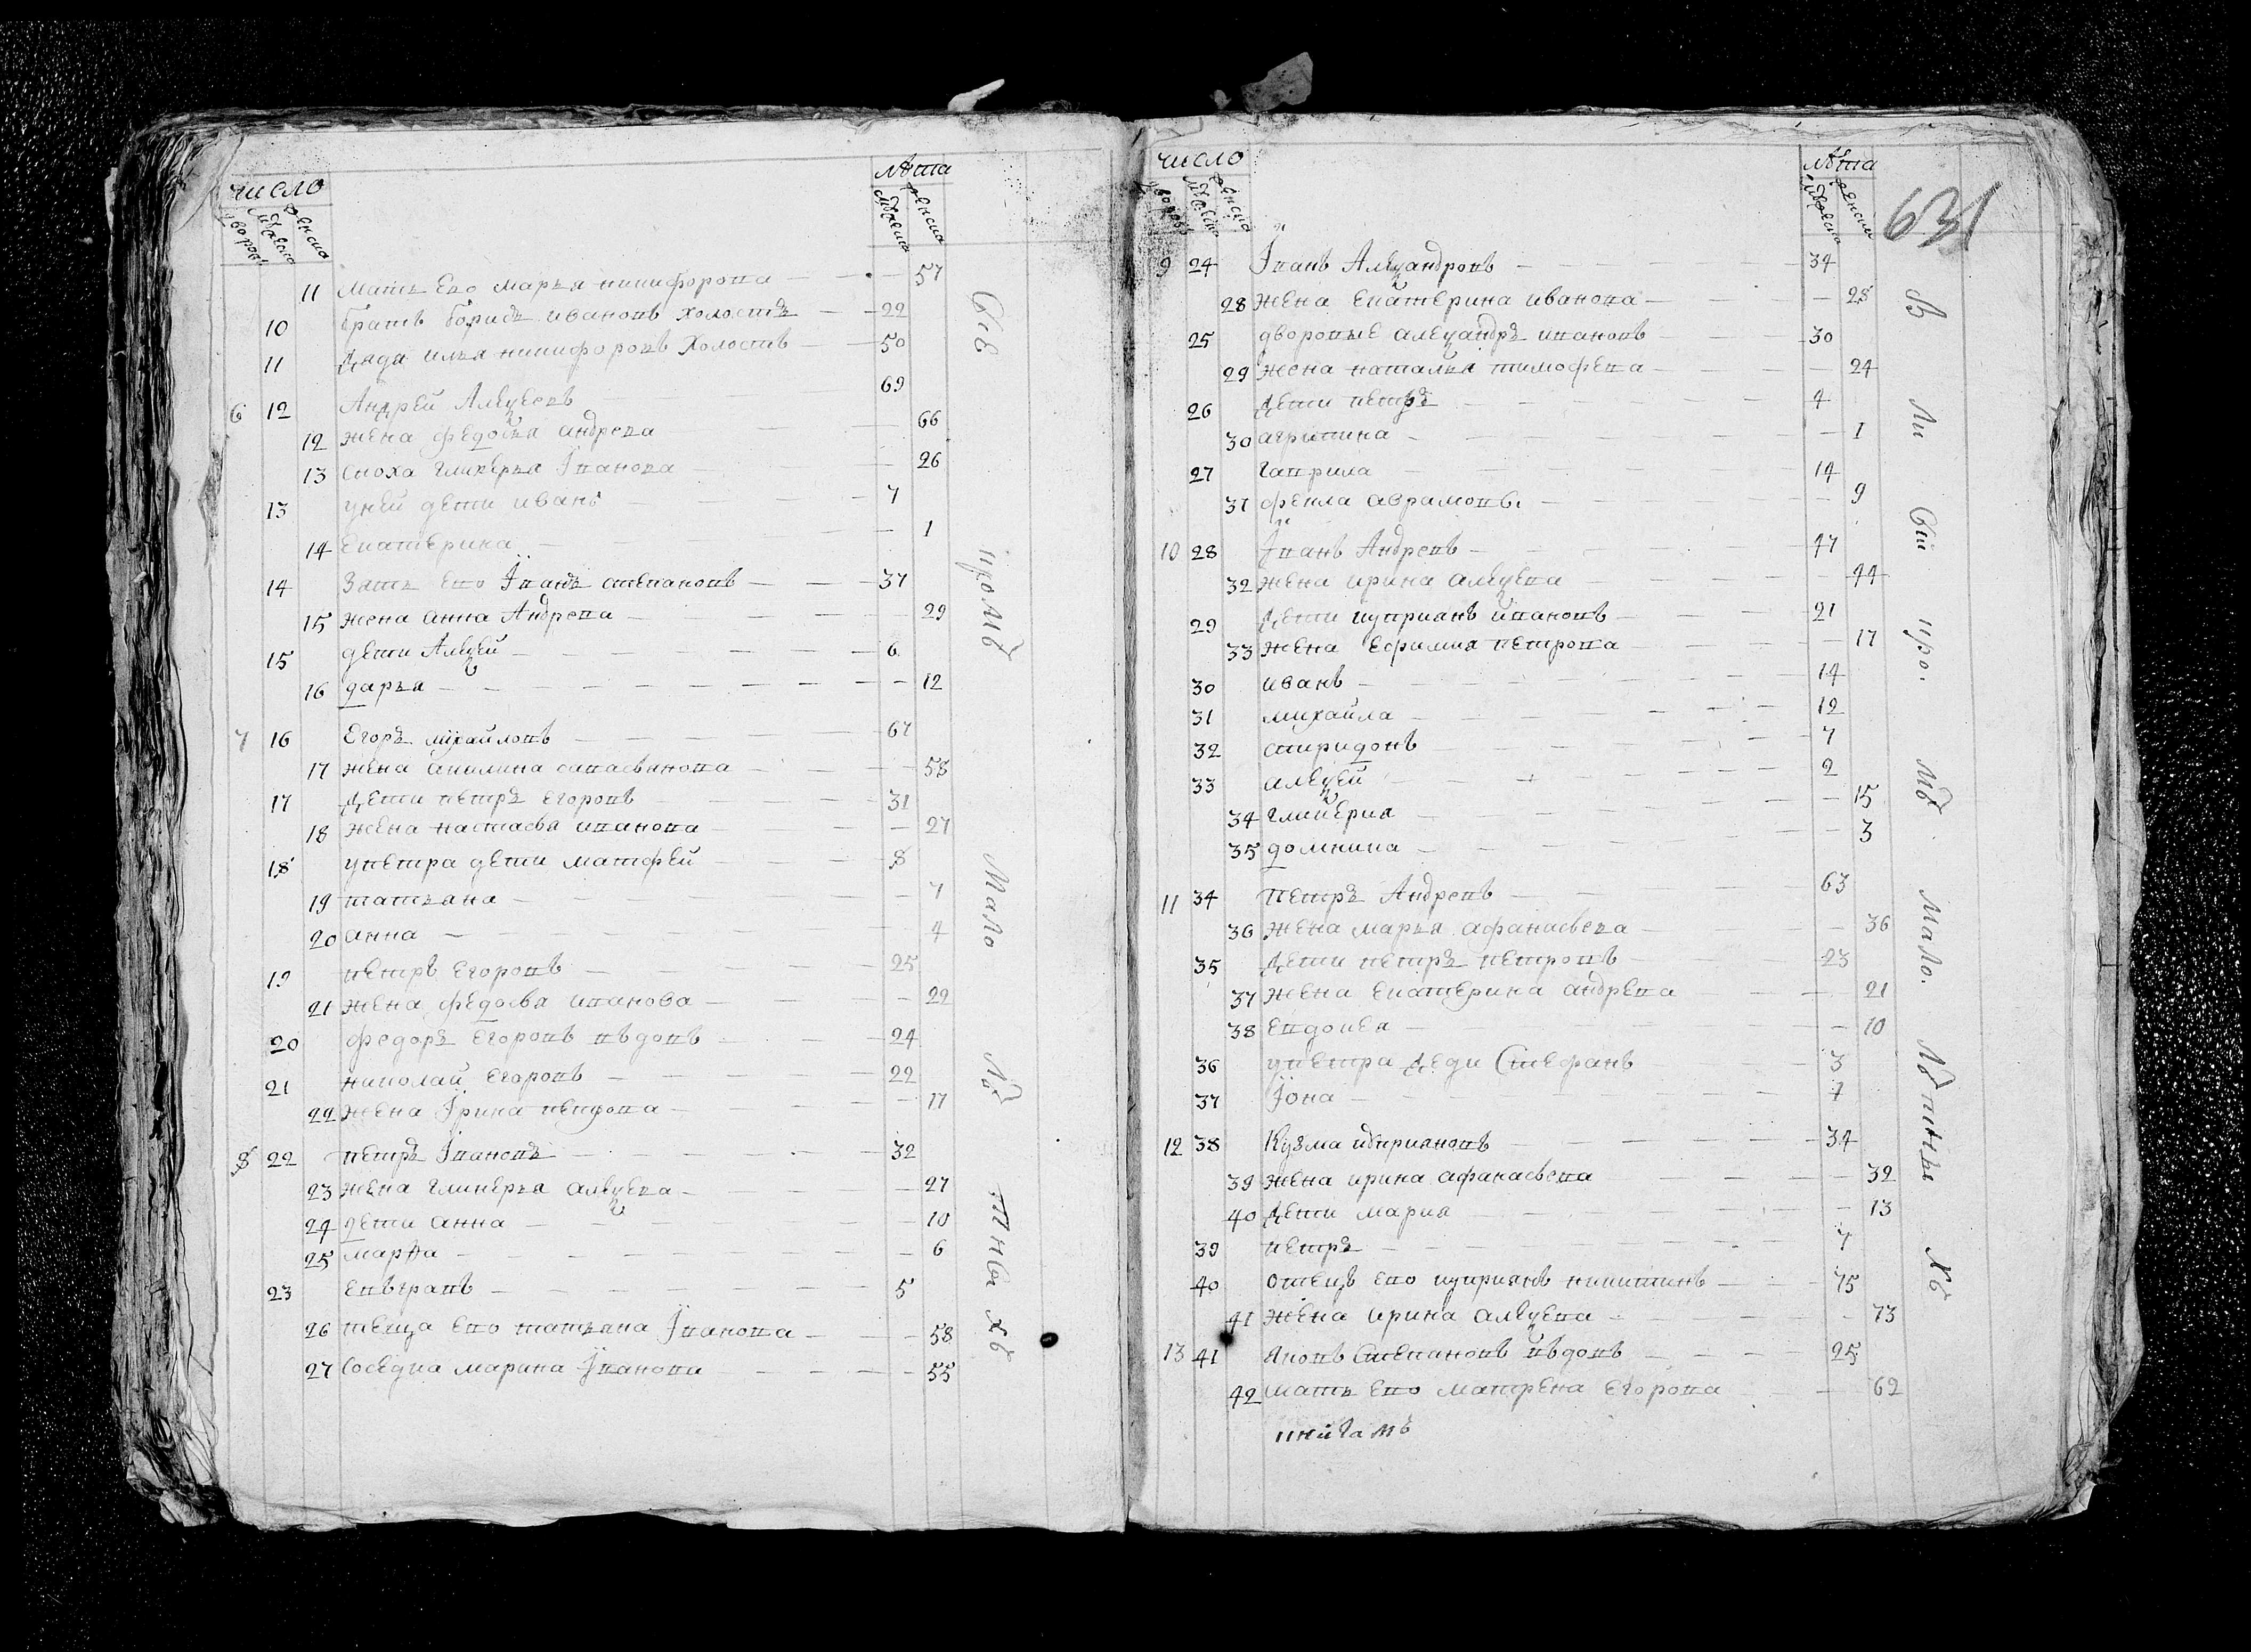 число
дворовъ
мужеска
женска
лѣта
мужеска
женска
11 мать ево марья никифорова 57
10 братъ борисъ ивановъ холостъ 22
11 дядя илья никифоровъ холостъ 50
6 12 Андрей Алеѯеевъ 69
12 жена федосья андрева 66
13 сноха гликерья Ївановa 26
13 уней дети иванъ 7
14 Екатерина 1
14 Зать ево Їванъ степановъ 37
15 жена анна Андрева 29
15 дети Алеѯей 6
16 дарья 12
7 16 Егоръ михайловъ 67
17 жена акилина 58
17 Дети петръ Егоровъ 31
18 жена настасья иванова 27
18 упетра дети матфей 8
19 татьяна 7
20 анна 4
19 петръ Егоровъ 25
21 жена федосья иванова 22
20 федоръ Егоровъ вдовъ 24
21 николай Егоровъ 22
22 жена Їрина 17
8 22 петръ Ївановъ 32
23 жена гликерья алеѯева 27
24 дети анна 10
25 марѳа 6
23 Евъграѳъ 5
26 теща ево татьяна Їванова 58
27 Соседка марина Їванова 55
Сїе
промѣ
Мало
лѣ
тны хъ
число
дворовъ
мужеска
женска
лѣта
мужеска
женска
631
9 24 Їванъ Алеѯандровъ 34
28 жена Екатерина иванова 28
25 дворовые алеѯандръ ивановъ 30
29 жена наталья тимофева 24
26 Дети петръ 4
30 агрипина 1
27 гаврила 14
31 фекла аврамова 9
10 28 Їванъ Андревъ 47
32 жена ирина алеѯева 44
29 Дети куприанъ ивановъ 21
33 жена Ефимия петрова 17
30 иванъ 14
31 михайла 12
32 спиридонъ 7
33 алеѯей 2
34 гликерия 15
35 домнина 3
11 34 Петръ Андревъ 63
36 жена марья афанасьева 36
35 Дети петръ петровъ 23
37 жена Екатерина андрева 21
38 Евдокея 10
36 упетра деди Стефанъ 3
37 Їона 1
12 38 Кузма куприановъ 34
39 жена ирина афанасьева 32
40 Дети мария 13
39 петръ 7
40 отецъ ево куприянъ никитинъ 75
41 жена ирина алеѯева 73
13 41 Яковъ Степановъ вдовъ 25
42 мать ево матрена Егорова 62
книгамъ
В
ли
сїи
кро.
мѣ
мало.
лѣтныхъ